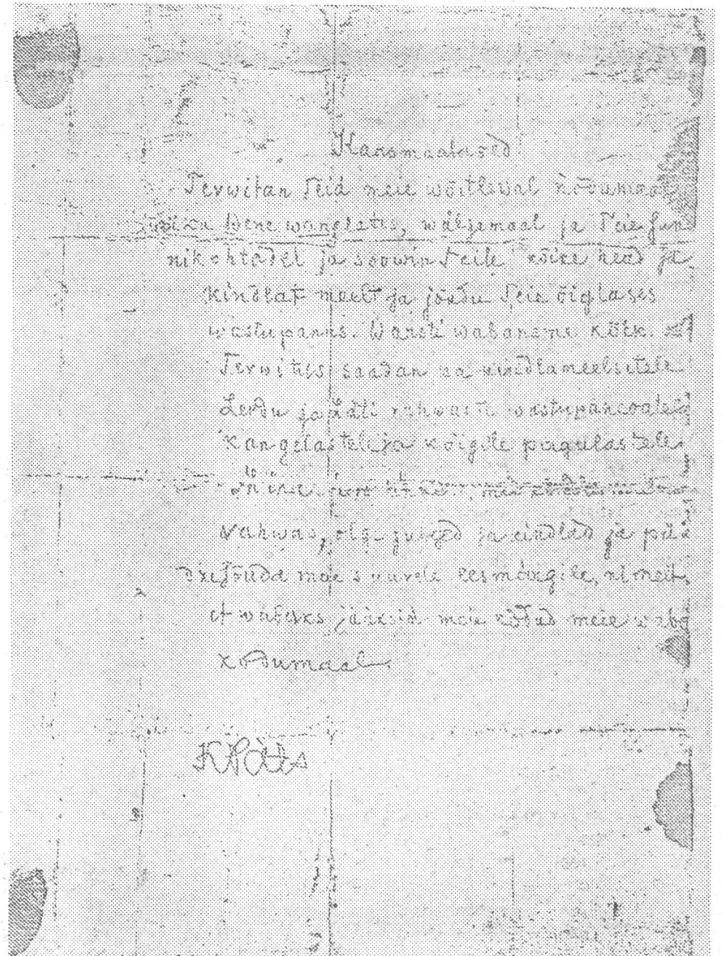 Kaasmaalased
Terwitan Teid meie wõitlewal kodumaal
Wene wanglates, wäljamaal ja Teie
ja soowin Teile kõike head ja
kindlat meelt ja jõudu Teie õiglases
wastupanus. Warsti wabaneme kõik.
Terwituse saadan ka kindlameelsetele
Leedu ja Läti rahwaste wastupanu
kangelastele ja kõigile pagulastele.
meie
rahwas, olge julged ja kindlad ja
jõuda meie suurele eesmärgile, nimelt,
et wabaks jääksid meie kodud meie waba
kodumaal.
KPäts